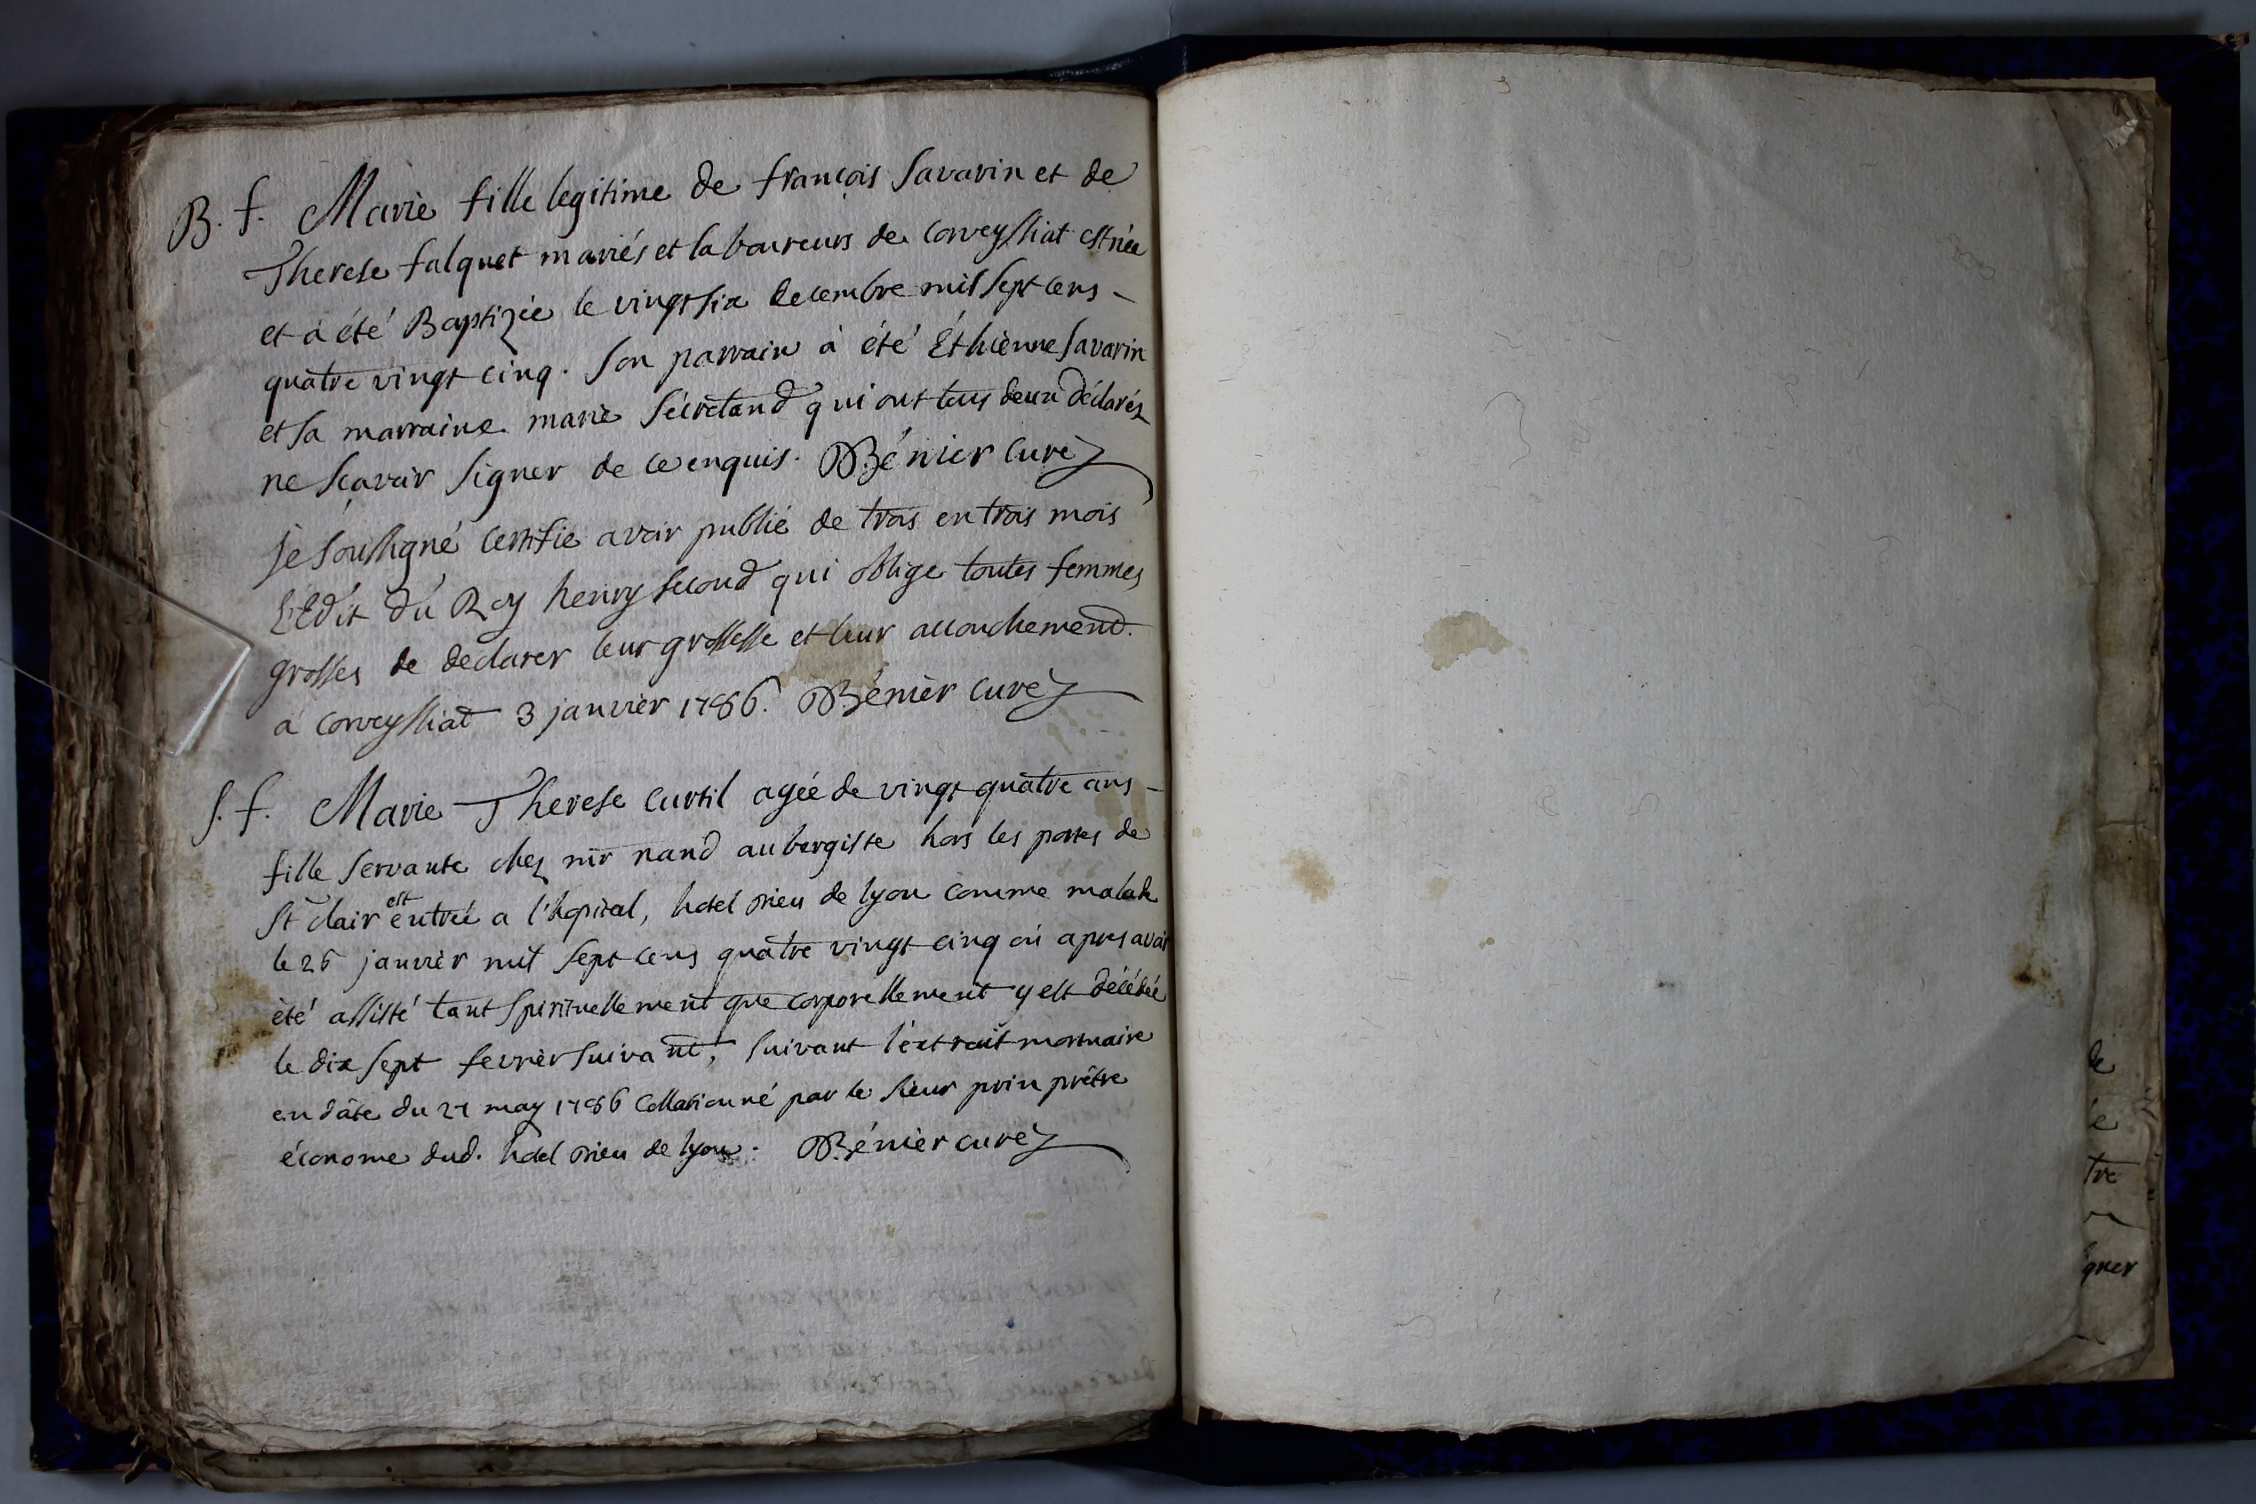 B. f. Marie fille legitime de françois Savarin et de
Therese falquet mariés et laboureurs de Corveyssiat est née
et à été Baptizée le vingt six decembre mil sept cens -
quatre vingt cinq. Son parrain à été Éthiènne Savarin
et sa marraine marie Sécrétand qui ont tous deux déclarés
ne scavoir signer de ce enquis. Bénier Curé
Je soussigné certifie avoir publié de trois en trois mois
L'Edit du Roy henry second qui oblige toutes femmes
grosses de declarer leur grossesse et leur accouchement.
à Corveyssiat 3 janvier 1786. Bénier Curé
S. f. Marie Therese Curtil agée de vingt quatre ans -
fille servante chez mr nand aubergiste hors les portes de
St Clair est entrée a l'hopital, hotel Dieu de lyon comme malade
le 26 janvier mil sept cens quatre vingt cinq où apres avoir
été assisté tant spirituellement que corporellement y est décédée
le dix sept fevrièr suivant, suivant l'extrait mortuaire
en dâte du 27 may 1786 Collationné par le sieur prin prêtre
économe dud. hotel Dieu de lyon. Bénier curé
de
e
tre
gner